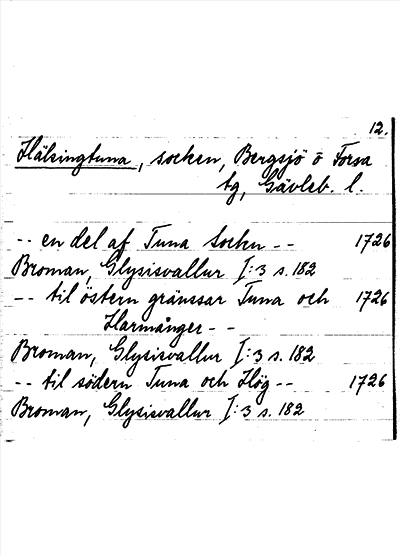 12.
Hälsingtuna, socken, Bergsjö o Forsa
tg, Gävleb. l.
-- en del af Tuna Sockn -- 1726
Broman, Glysisvallur I:3 s. 182
-- til östern gränssar Tuna och 1726
Harmånger --
Broman, Glysisvallur I:3 s. 182
-- til södern Tuna och Hög -- 1726
Broman, Glysisvallur I:3 s. 182